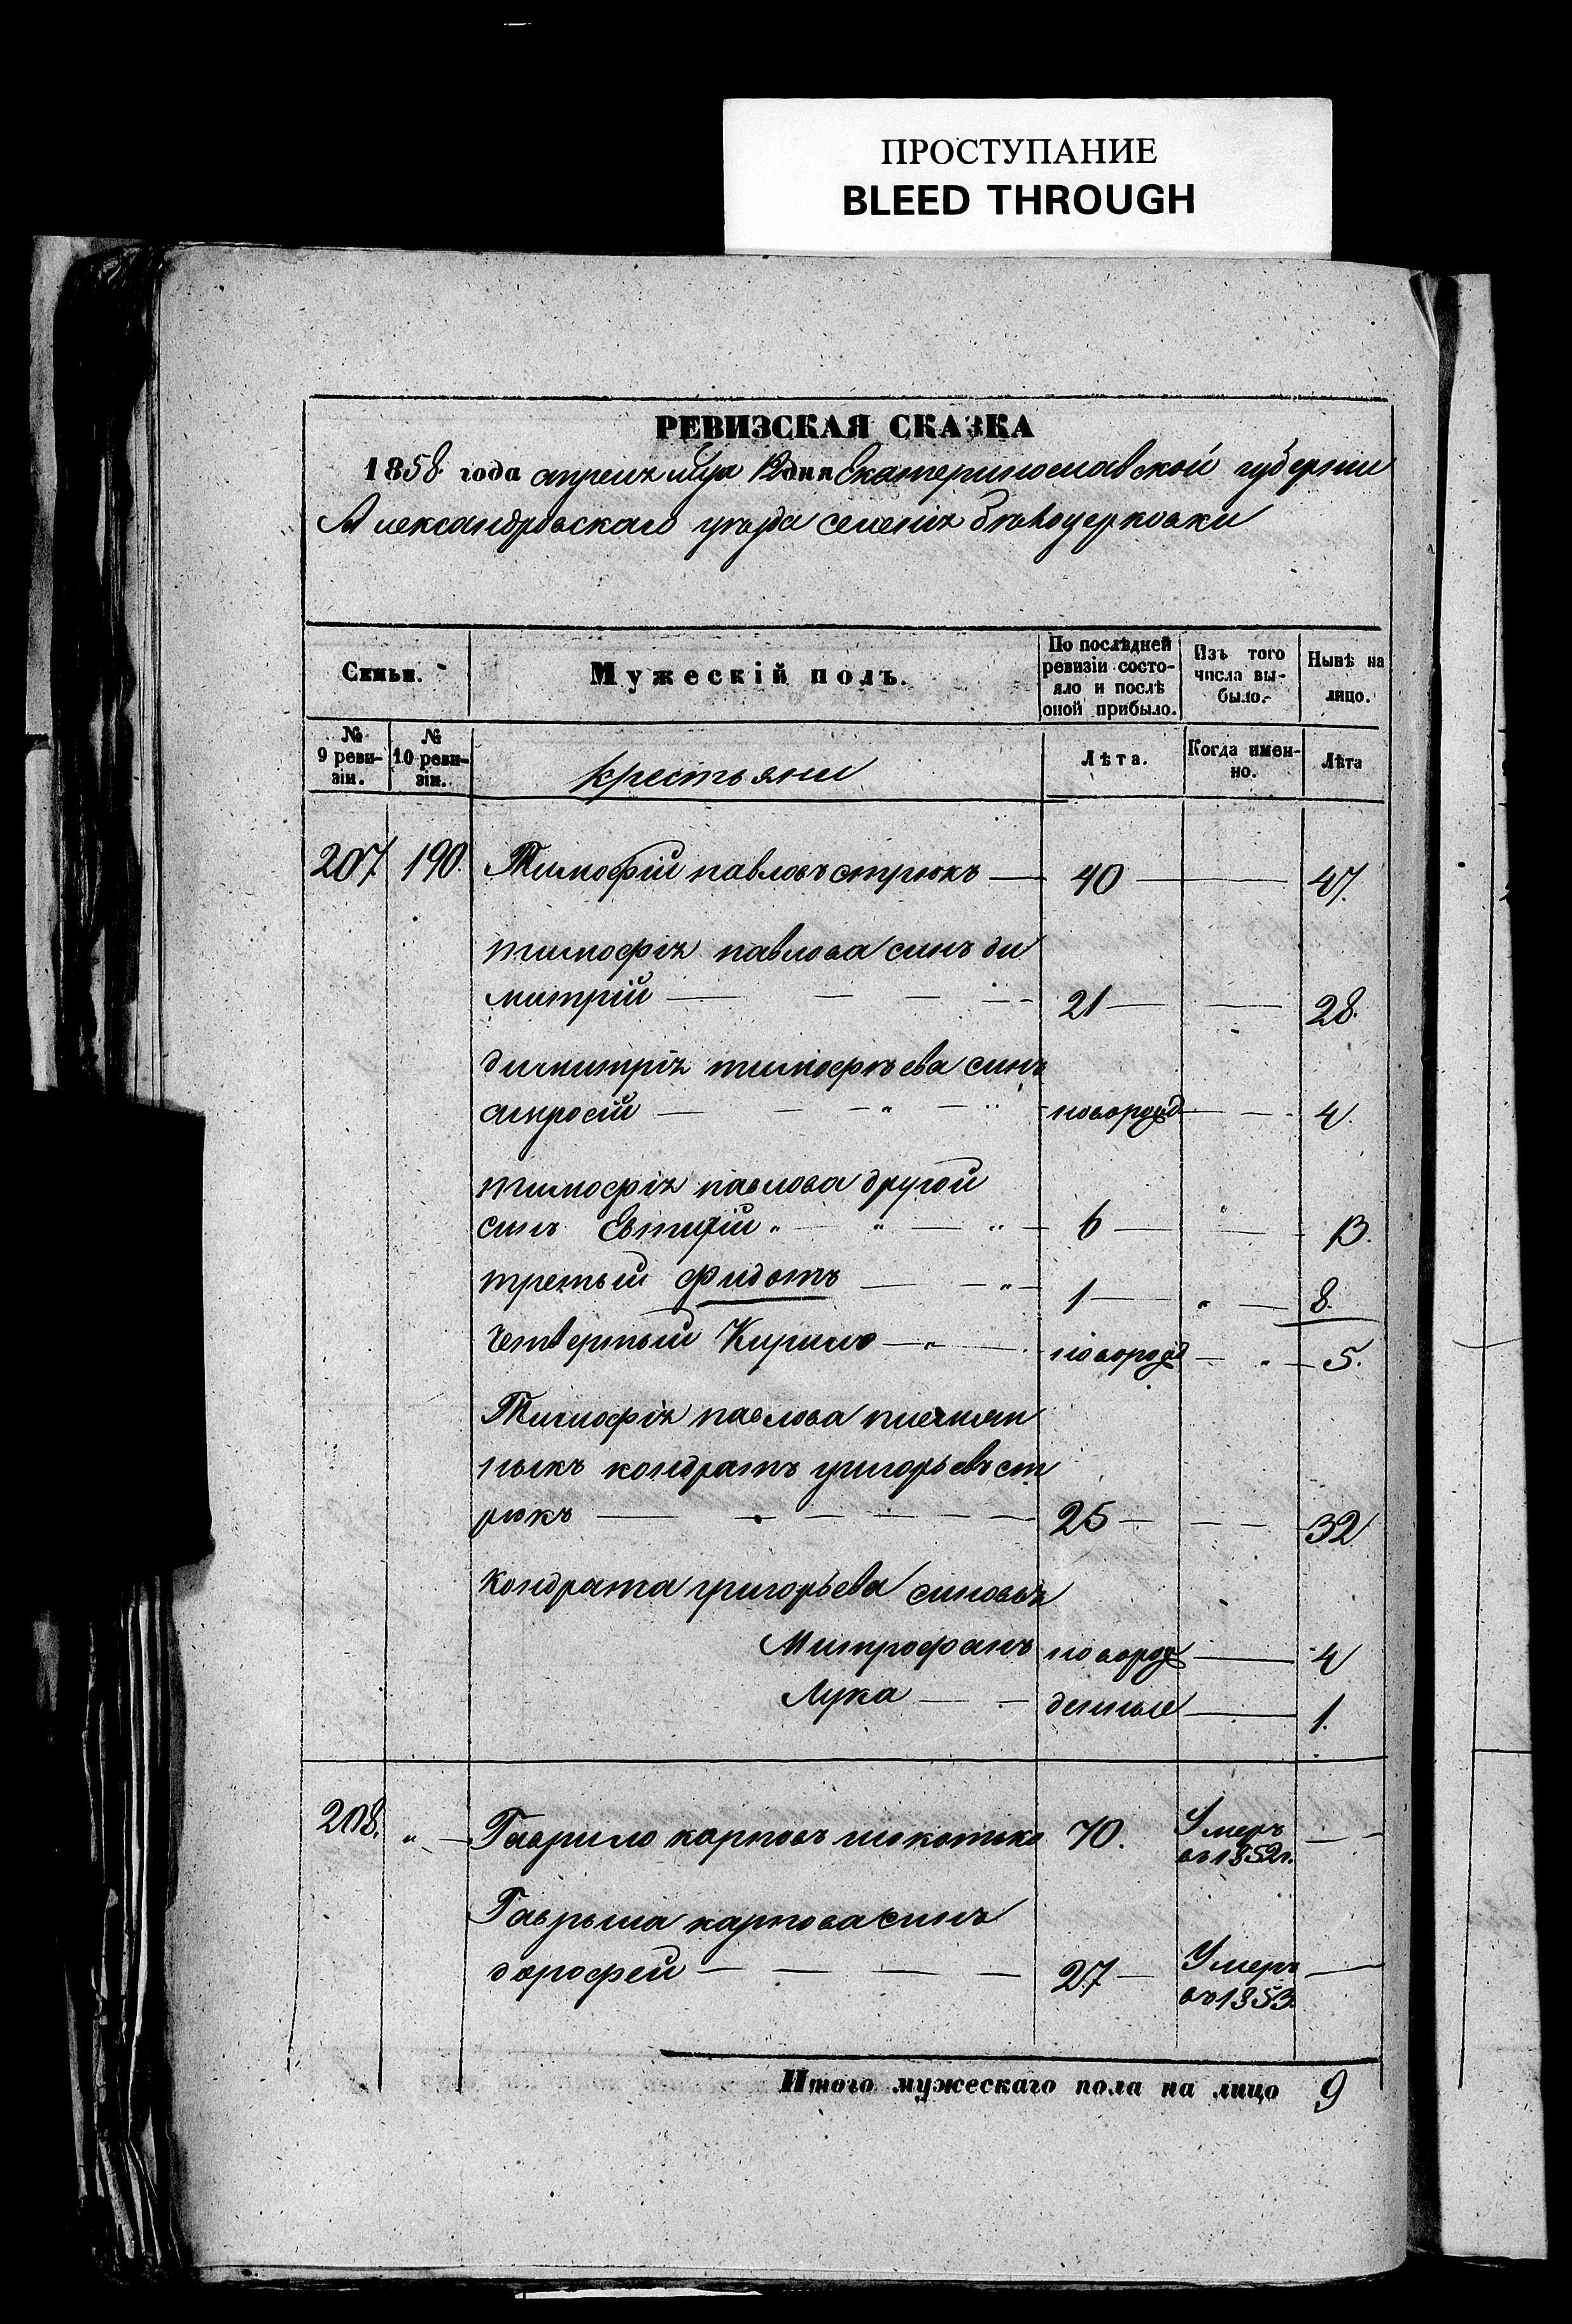 ПРОСТУПАНИЕ
BLEED THROUGH
РЕВИЗСКАЯ СКАЗКА
1858 года апреля мця 12 дня Екатеринославской губернии
Александровскаго уезда селения бѣлоцерковки
Семьи. Мужескій полъ. По послѣдней ревизіи состояло и послѣ оной прибыло. Изъ того числа выбыло. Нынѣ на лицо.
№ 9 ревизіи. № 10 ревизіи. крестьяни Лѣта. Когда именно. Лѣта
207. 190. Тимофій павловъ стрюкъ — 40 — 47.
тимофія павлова синъ ди
митрій — 21 — 28.
димитрія тимофѣева синъ
амросій — новорожд — 4.
тимофія павлова другой
синъ Евтифій " 6 — " — 13.
третьий Фидотъ — " 1 — " — 8.
Четвертый Кирило — " новорожд — " — 5.
Тимофія павлова племян
ныкъ кондратъ григорьевъ ст
рюкъ — 25 — 32
Кондрата григорьева синовья
Митрофанъ новорож — 4
Лука — денные — 1.
208. " — Гаврило карповъ 70. Умеръ въ 1852г. —
Гаврыла карпова синъ
дорофей — 27 — Умеръ въ 1853 —
Итого мужескаго пола на лицо 9